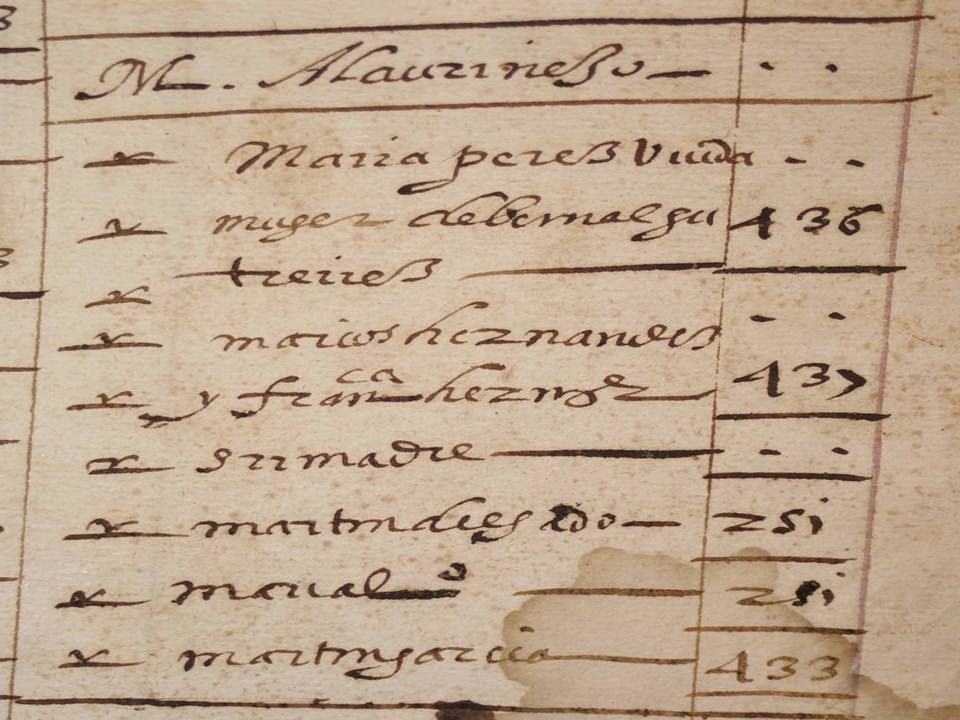 M. Alaurineso — . .
Maria peres viuda . .
muger debernalgu 436
treires
marcos hernandes . .
y franca herngz 437
su madre . .
martin delgado 251
marcial 251
martin garcia 433